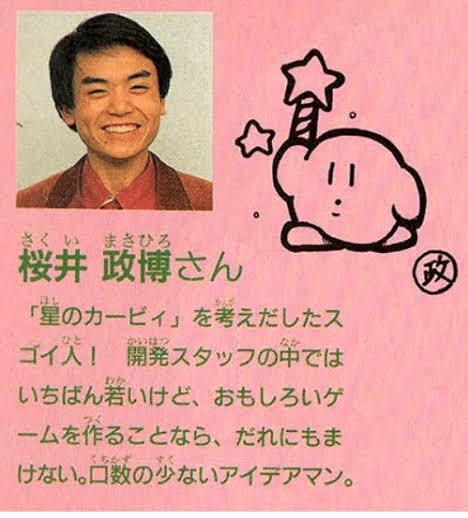 桜井 政博さん
「星のカービィ」を考えだしたス
ゴイ人! 開発スタッフの中では
いちばん若いけど、おもしろいゲ
ームを作ることなら、だれにもま
けない。口数の少ないアイデアマン。
政